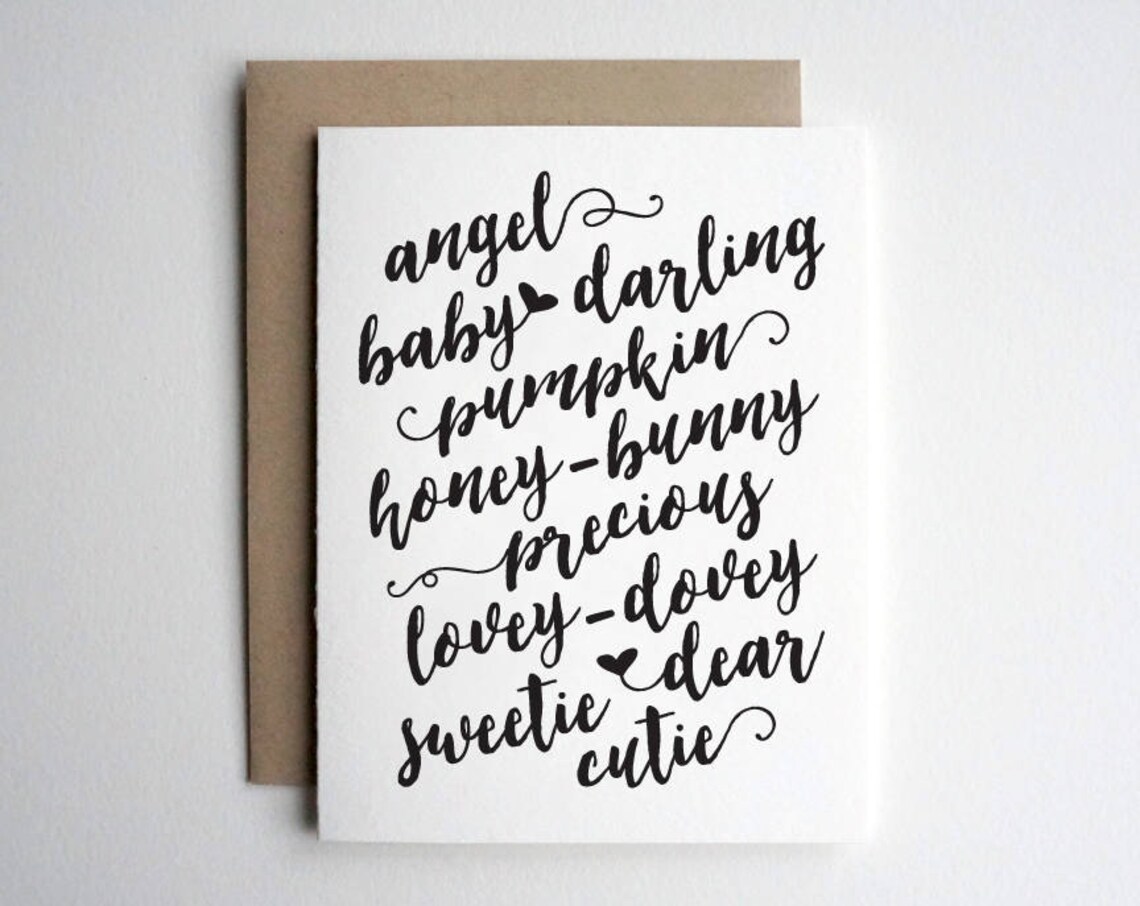 angel
baby darling
pumpkin
honey-bunny
precious
lovey-dovey
sweetie dear
cutie